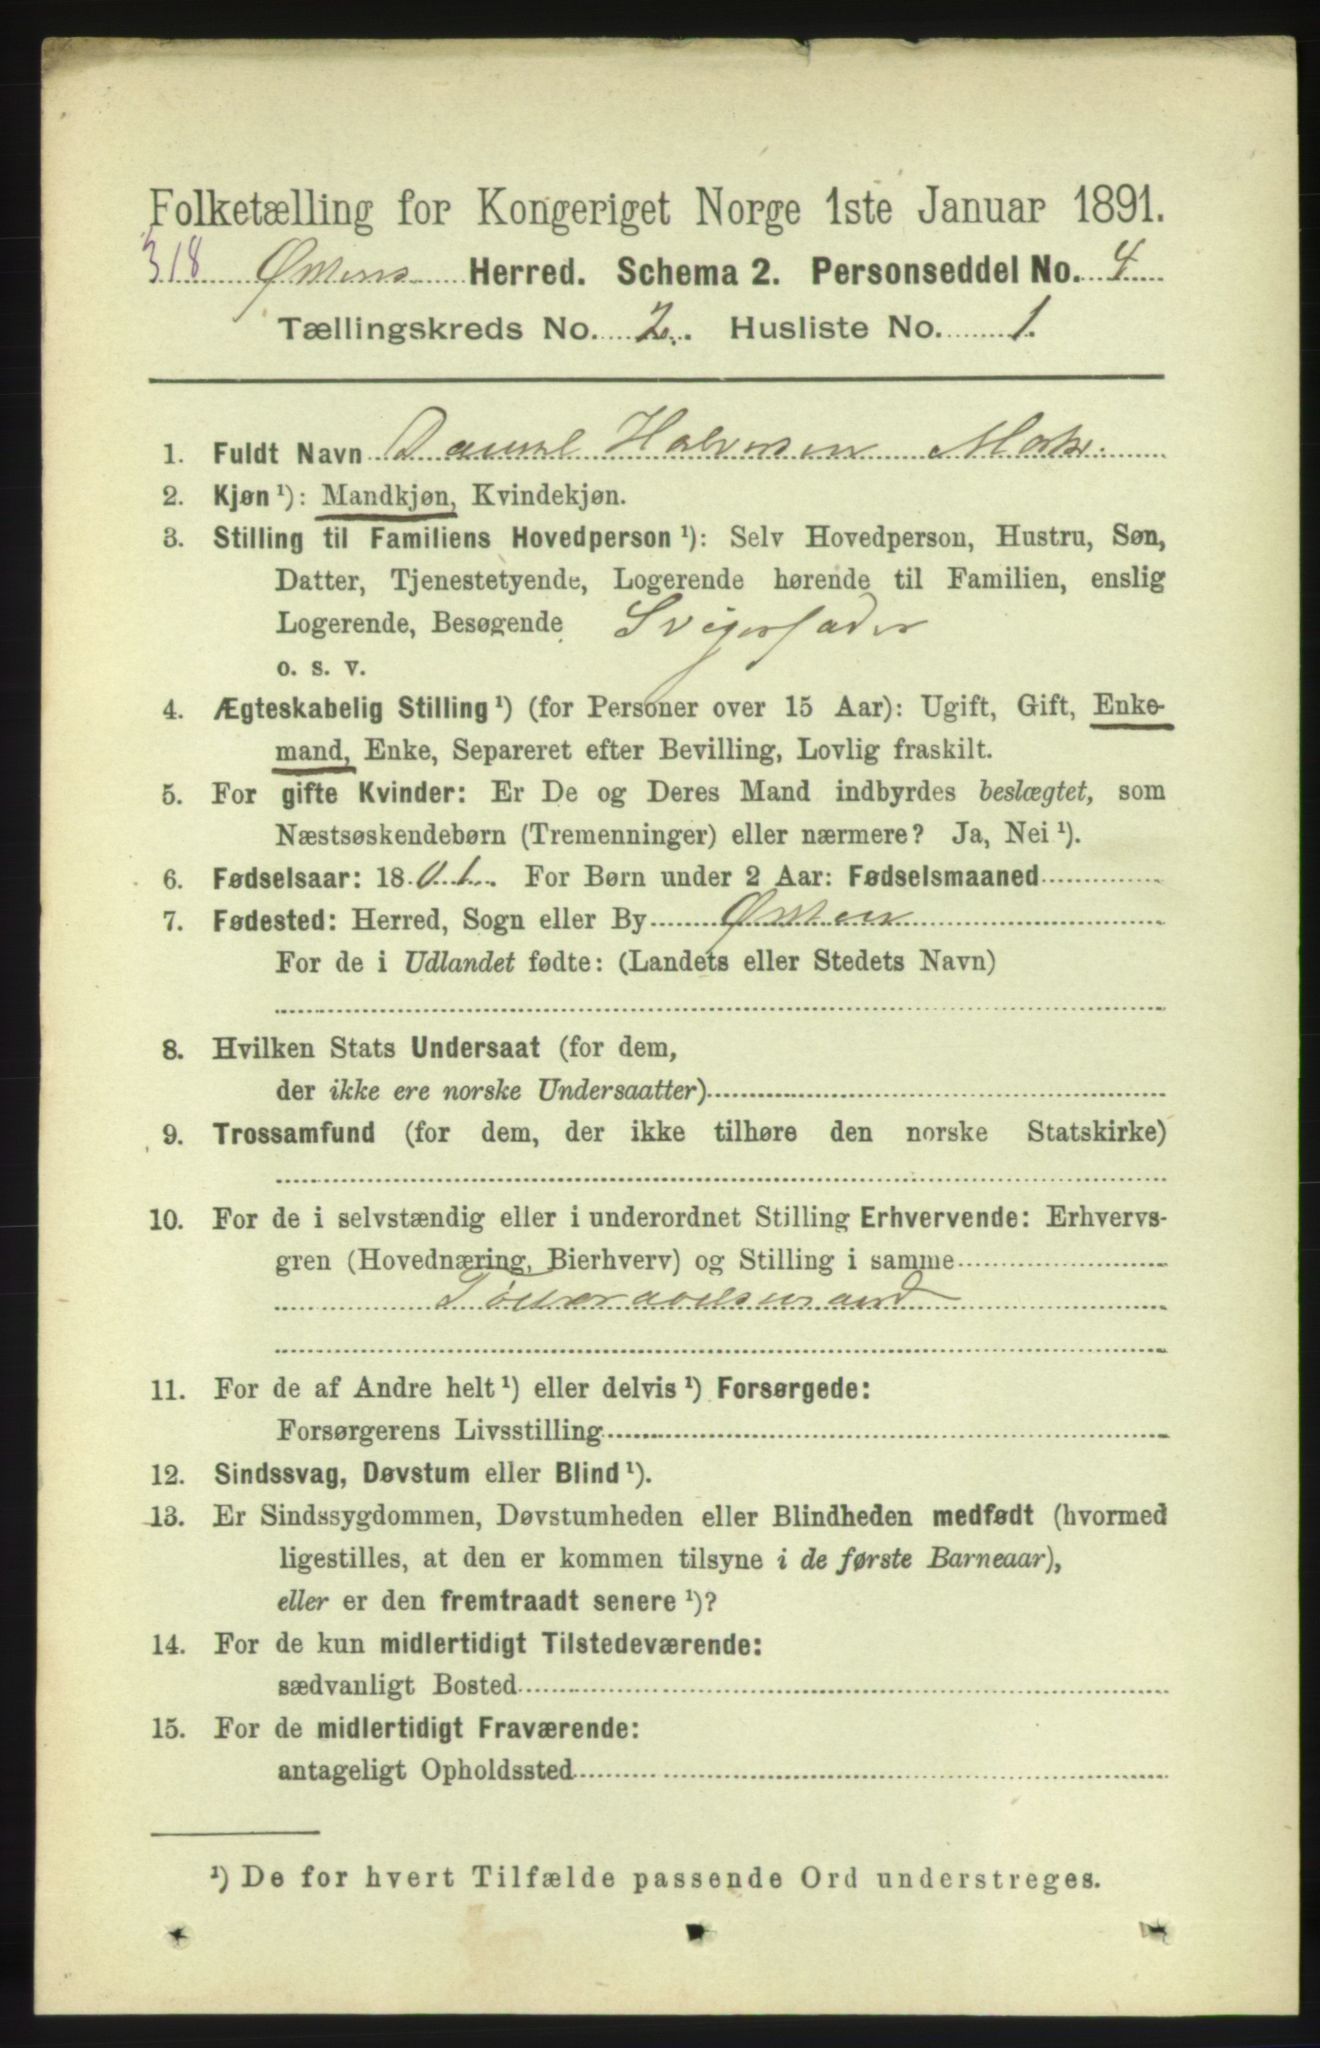 Folketælling for Kongeriget Norge 1ste Januar 1891.
318 Øksnes Herred. Schema 2. Personseddel No. 4
Tællingskreds No. 2. Husliste No. 1.
1. Fuldt Navn Daniel Halvorsen
2. Kjøn ¹): Mandkjøn, Kvindekjøn.
3. Stilling til Familiens Hovedperson ¹): Selv Hovedperson, Hustru, Søn,
Datter, Tjenestetyende, Logerende hørende til Familien, enslig
Logerende, Besøgende Svigerfader
o. s. v.
4. Ægteskabelig Stilling ¹) (for Personer over 15 Aar): Ugift, Gift, Enke-
mand, Enke, Separeret efter Bevilling, Lovlig fraskilt.
5. For gifte Kvinder: Er De og Deres Mand indbyrdes beslægtet, som
Næstsøskendebørn (Tremenninger) eller nærmere? Ja, Nei ¹).
6. Fødselsaar: 1801. For Børn under 2 Aar: Fødselsmaaned
7. Fødested: Herred, Sogn eller By Øksnes
For de i Udlandet fødte: (Landets eller Stedets Navn)
8. Hvilken Stats Undersaat (for dem,
der ikke ere norske Undersaatter)
9. Trossamfund (for dem, der ikke tilhøre den norske Statskirke)
10. For de i selvstændig eller i underordnet Stilling Erhvervende: Erhvervs-
gren (Hovednæring, Bierhverv) og Stilling i samme
Føderaadsmand
11. For de af Andre helt ¹) eller delvis ¹) Forsørgede:
Forsørgerens Livsstilling
12. Sindssvag, Døvstum eller Blind ¹).
13. Er Sindssygdommen, Døvstumheden eller Blindheden medfødt (hvormed
ligestilles, at den er kommen tilsyne i de første Barneaar),
eller er den fremtraadt senere ¹)?
14. For de kun midlertidigt Tilstedeværende:
sædvanligt Bosted
15. For de midlertidigt Fraværende:
antageligt Opholdssted
¹) De for hvert Tilfælde passende Ord understreges.